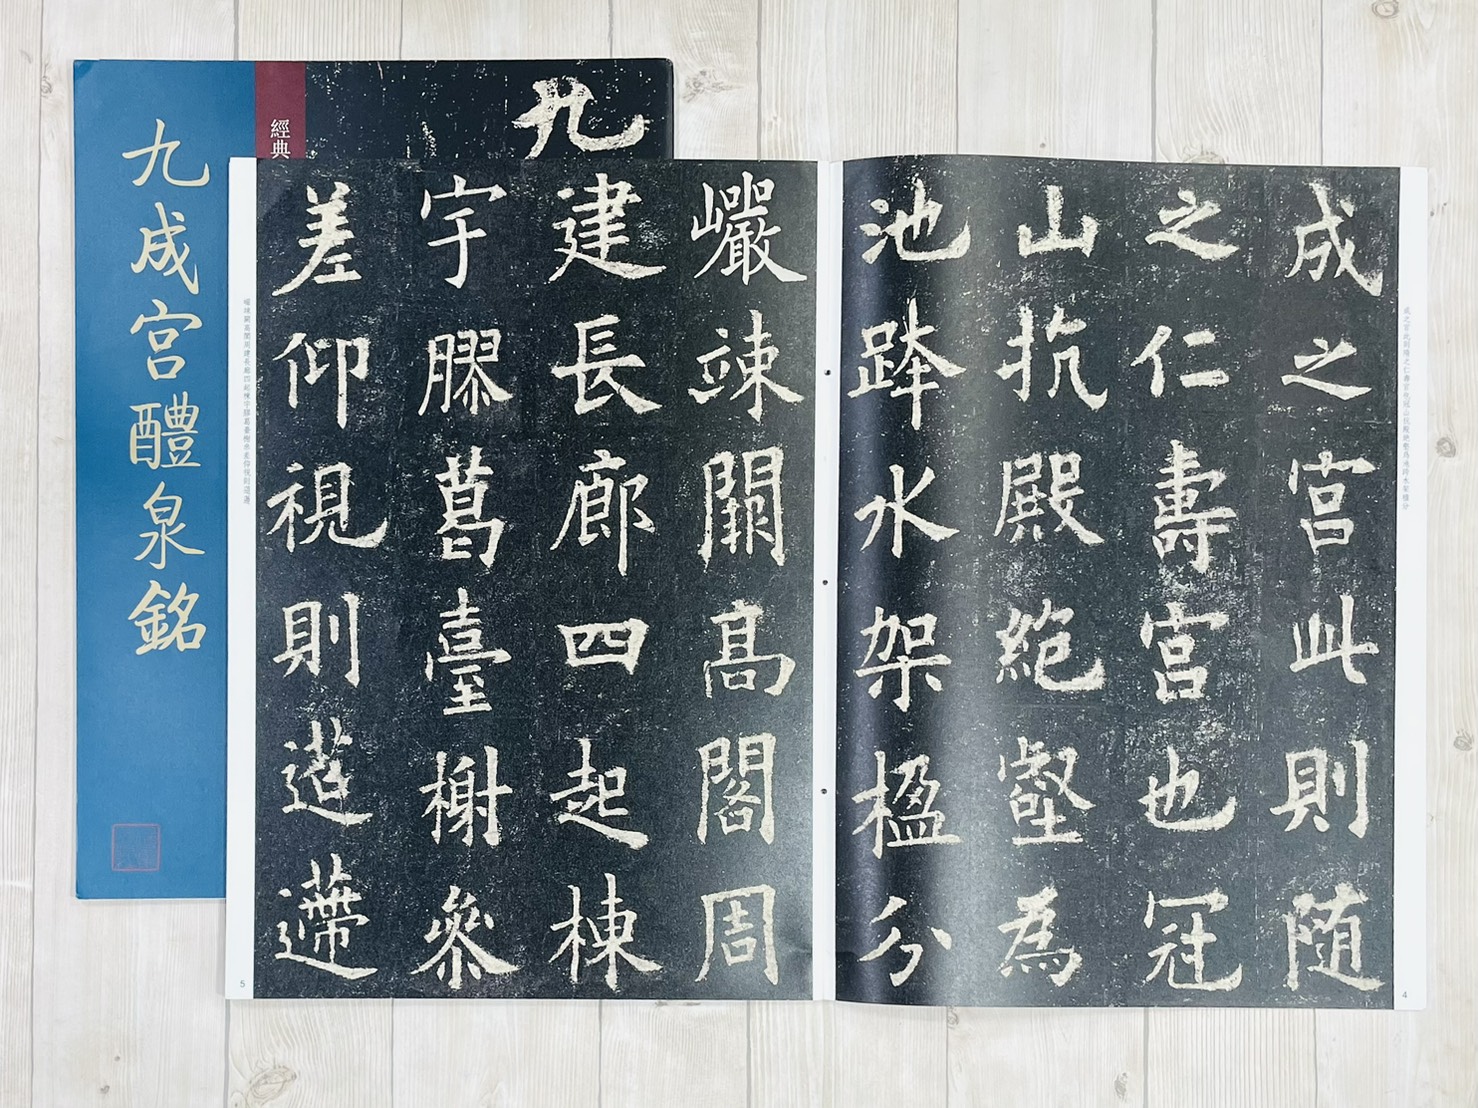 九成宮醴泉銘
經典
九
成之宮此則随
之仁壽宮也冠
山抗殿絶壑為
池跨水架楹分
成之宮此則隋之仁壽宮也冠山抗殿絶壑爲池跨水架楹分
4
巗竦闕高閣周
建長廊四起棟
宇膠葛臺榭参
差仰視則迢遰
巗竦闕高閣周建長廊四起棟宇膠葛臺榭參差仰視則迢遰
5